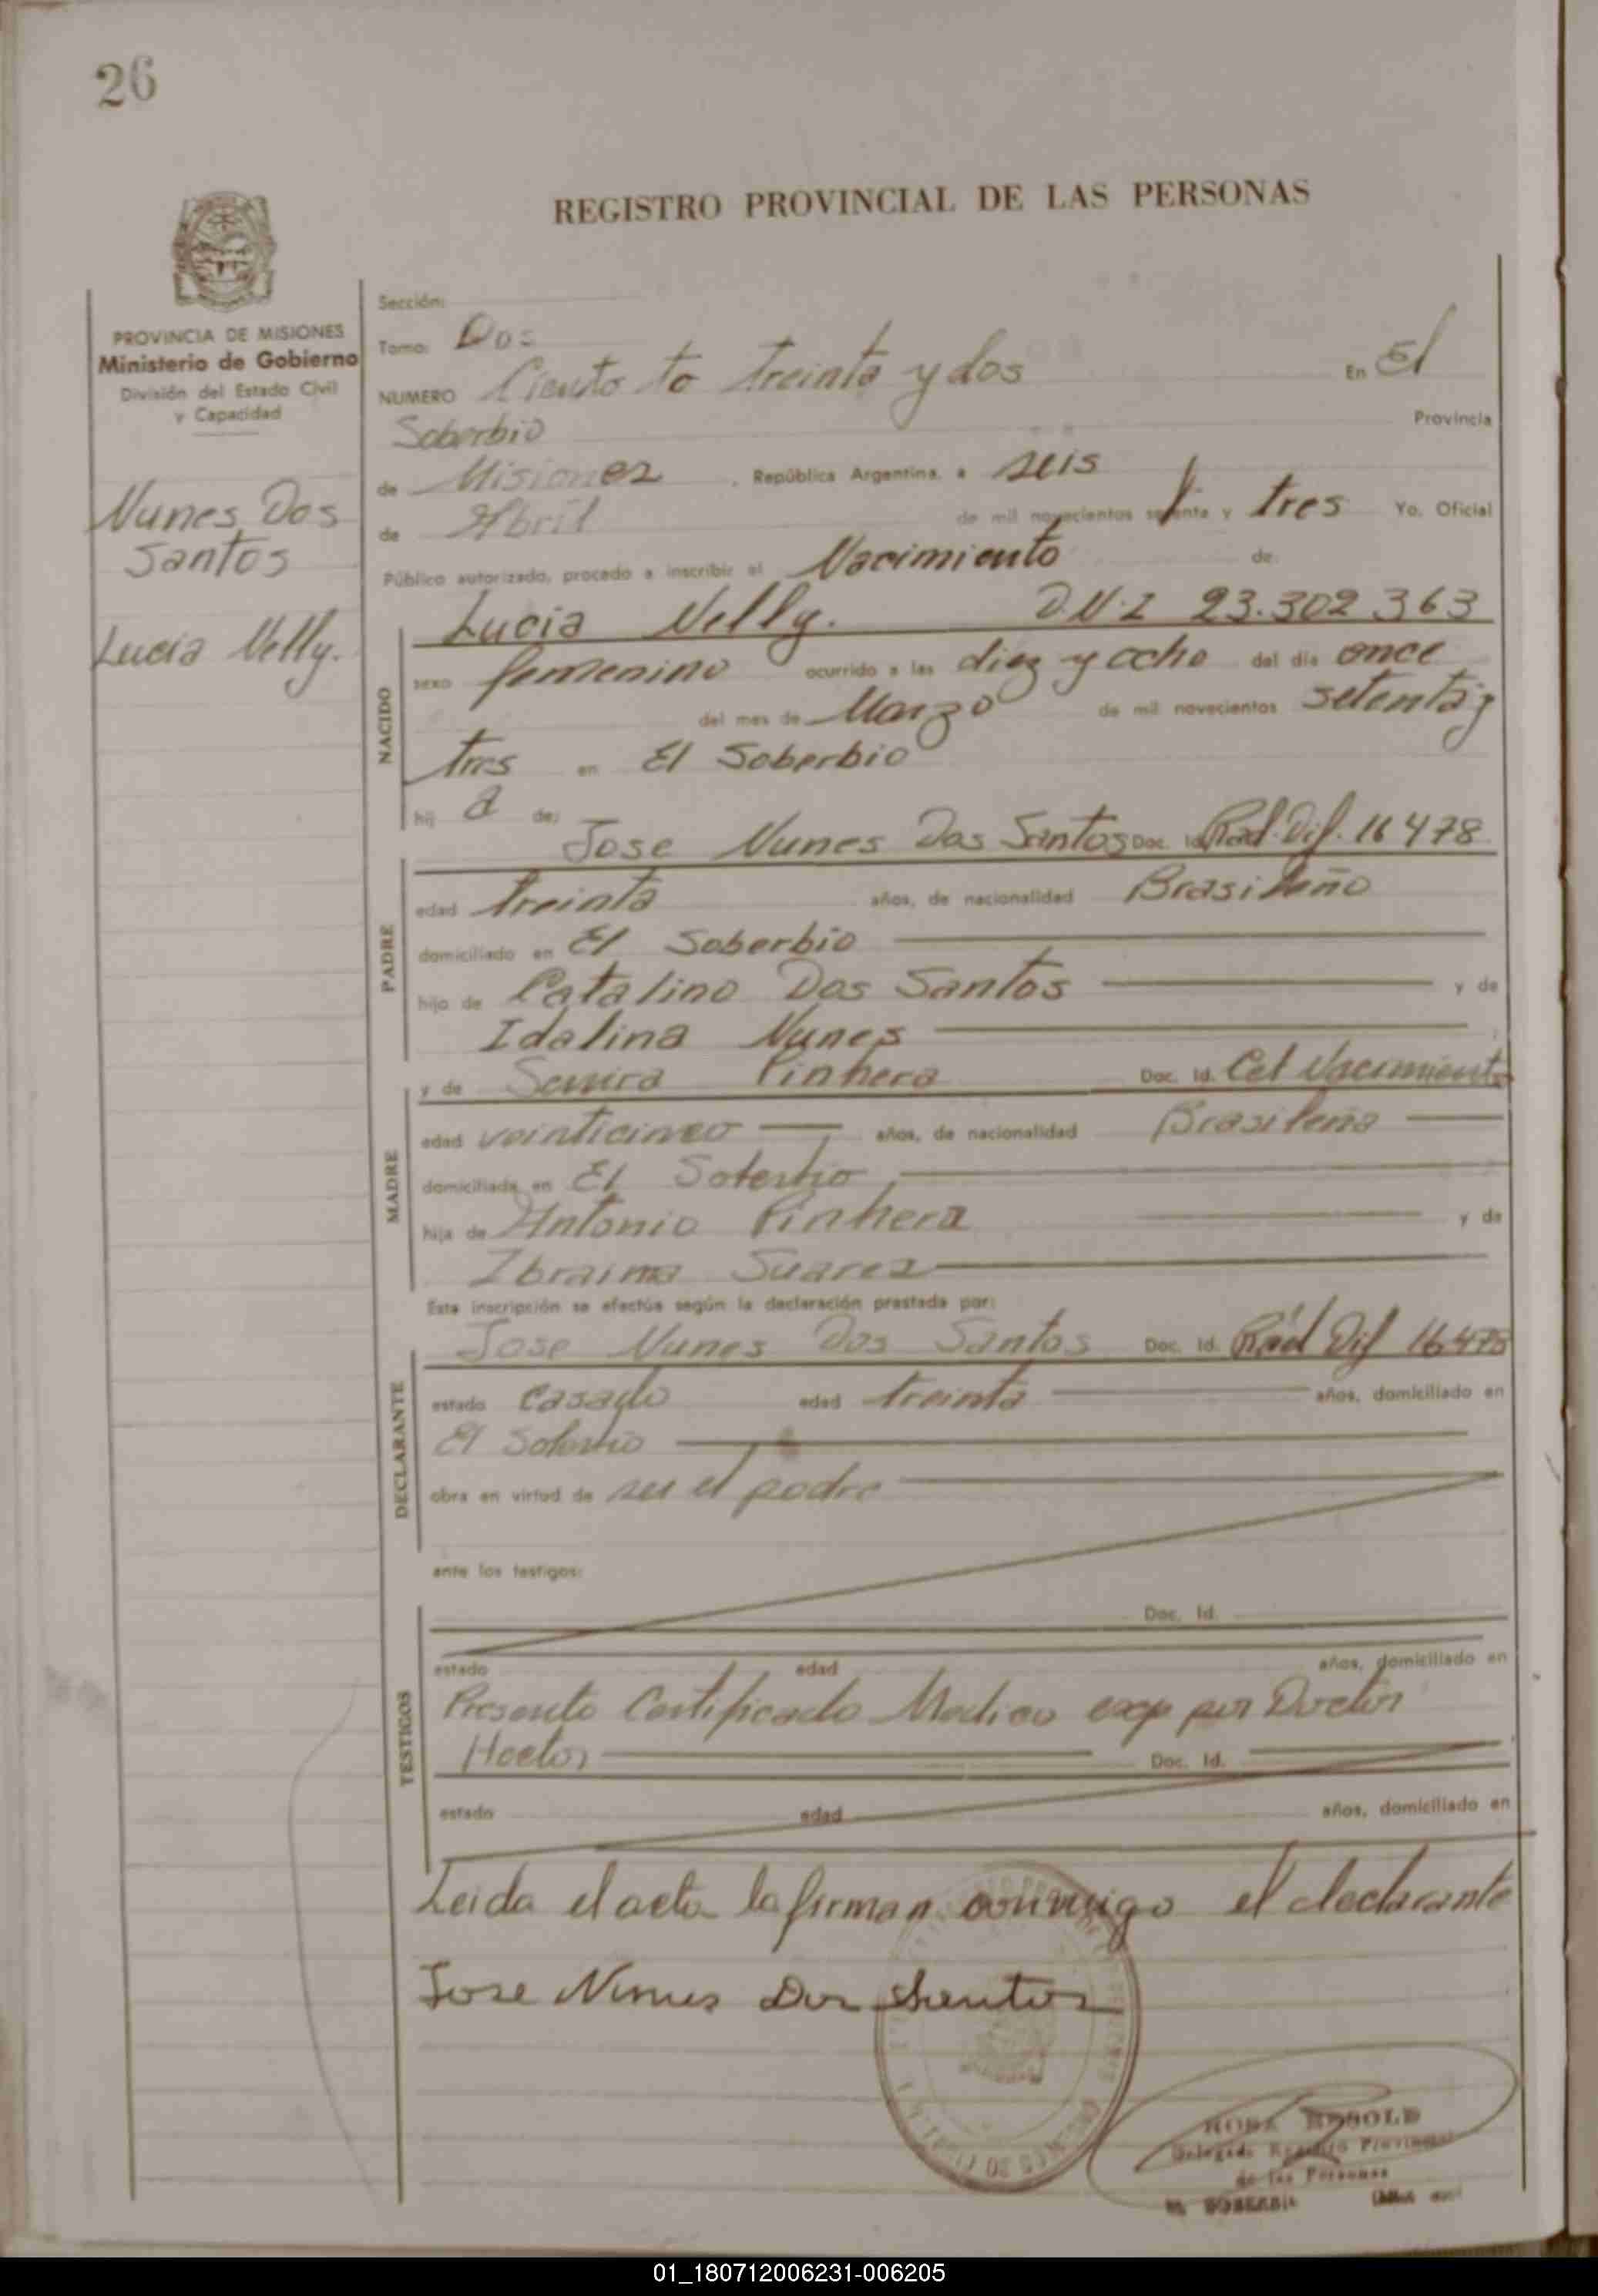 26
REGISTRO PROVINCIAL DE LAS PERSONAS
PROVINCIA DE MISIONES
Ministerio de Gobierno
División del Estado Civil
y Capacidad
Nunes Dos
Santos
Lucia Nelly.
Sección:
Tomo: Dos
NUMERO Ciento to treinta y dos En El
Soberbio Provincia
de Misiones, República Argentina, a seis
de Abril de mil novecientos setenta y tres Yo. Oficial
Público autorizado, procedo a inscribir el Nacimiento de:
NACIDO
Lucia Nelly. D.N.I 23.302.363
sexo femenino ocurrido a las diez y ocho del día once
del mes de Marzo de mil novecientos setenta y
tres en El Soberbio
hij a de:
PADRE
Jose Nunes Dos Santos Doc. Id. Rad. Dif. 16478
edad treinta años, de nacionalidad Brasileño
domiciliado en El Soberbio
hijo de Catalino Dos Santos y de
Idalina Nunes
MADRE
y de Pinhera Doc. Id. Cet Nacimiento
edad veinticinco años, de nacionalidad Brasileña
domiciliada en El Soberbio
hija de Antonio Pinhera y de
Ibraima Suarez
Esta inscripción se efectúa según la declaración prestada por:
DECLARANTE
Jose Nunes Dos Santos Doc. Id. Rad Dif 16478
estado Casado edad treinta años, domiciliado en
El Soberbio
obra en virtud de ser el padre
ante los testigos:
TESTIGOS
Doc. Id.
estado edad años, domiciliado en
Presento Certificado Medico exp por Doctor
Hector Doc. Id.
estado edad años, domiciliado en
Leida el acta la firman conmigo el declarante
Jose Nunes Dos Santos
Delegada Registro Provincial
de las Personas
EL SOBERBIO
01_180712006231-006205